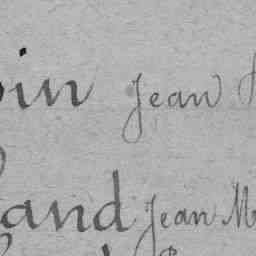 oin Jean
and Jean M